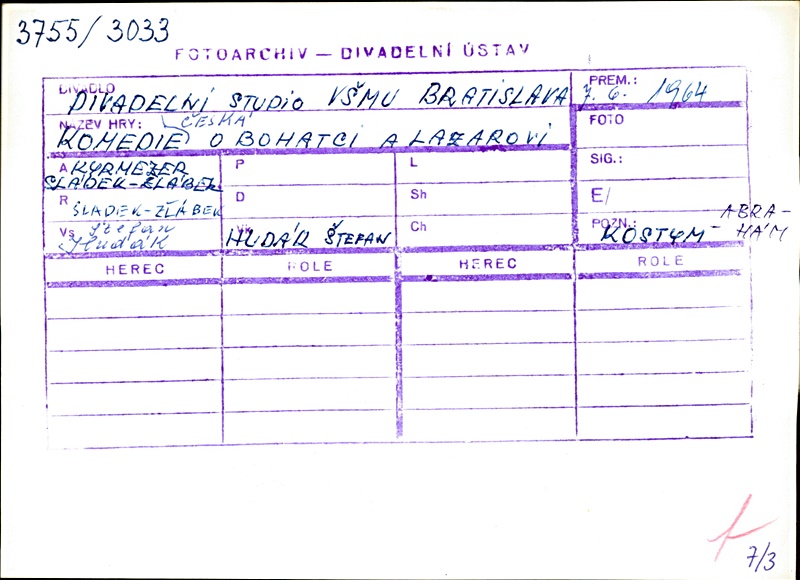 3755/3033
FOTOARCHIV — DIVADELNÍ ÚSTAV
DIVADLO
DIVADELNÍ STUDIO VŠMU BRATISLAVA
PREM.:
7. 6. 1964
NÁZEV HRY:
ČESKÁ
KOMEDIE O BOHATCI A LAZAROVI
FOTO
A KYRMEZER
SLADEK-ŽLÁBEK
P
L
SIG.:
R SLADEK-ŽLÁBEK
D
Sh
E/
Vs Štefan
Hudák
HUDÁK ŠTEFAN
Ch
POZN.:
KOSTYM - ABRA-
HÁM
HEREC ROLE HEREC ROLE
7/3